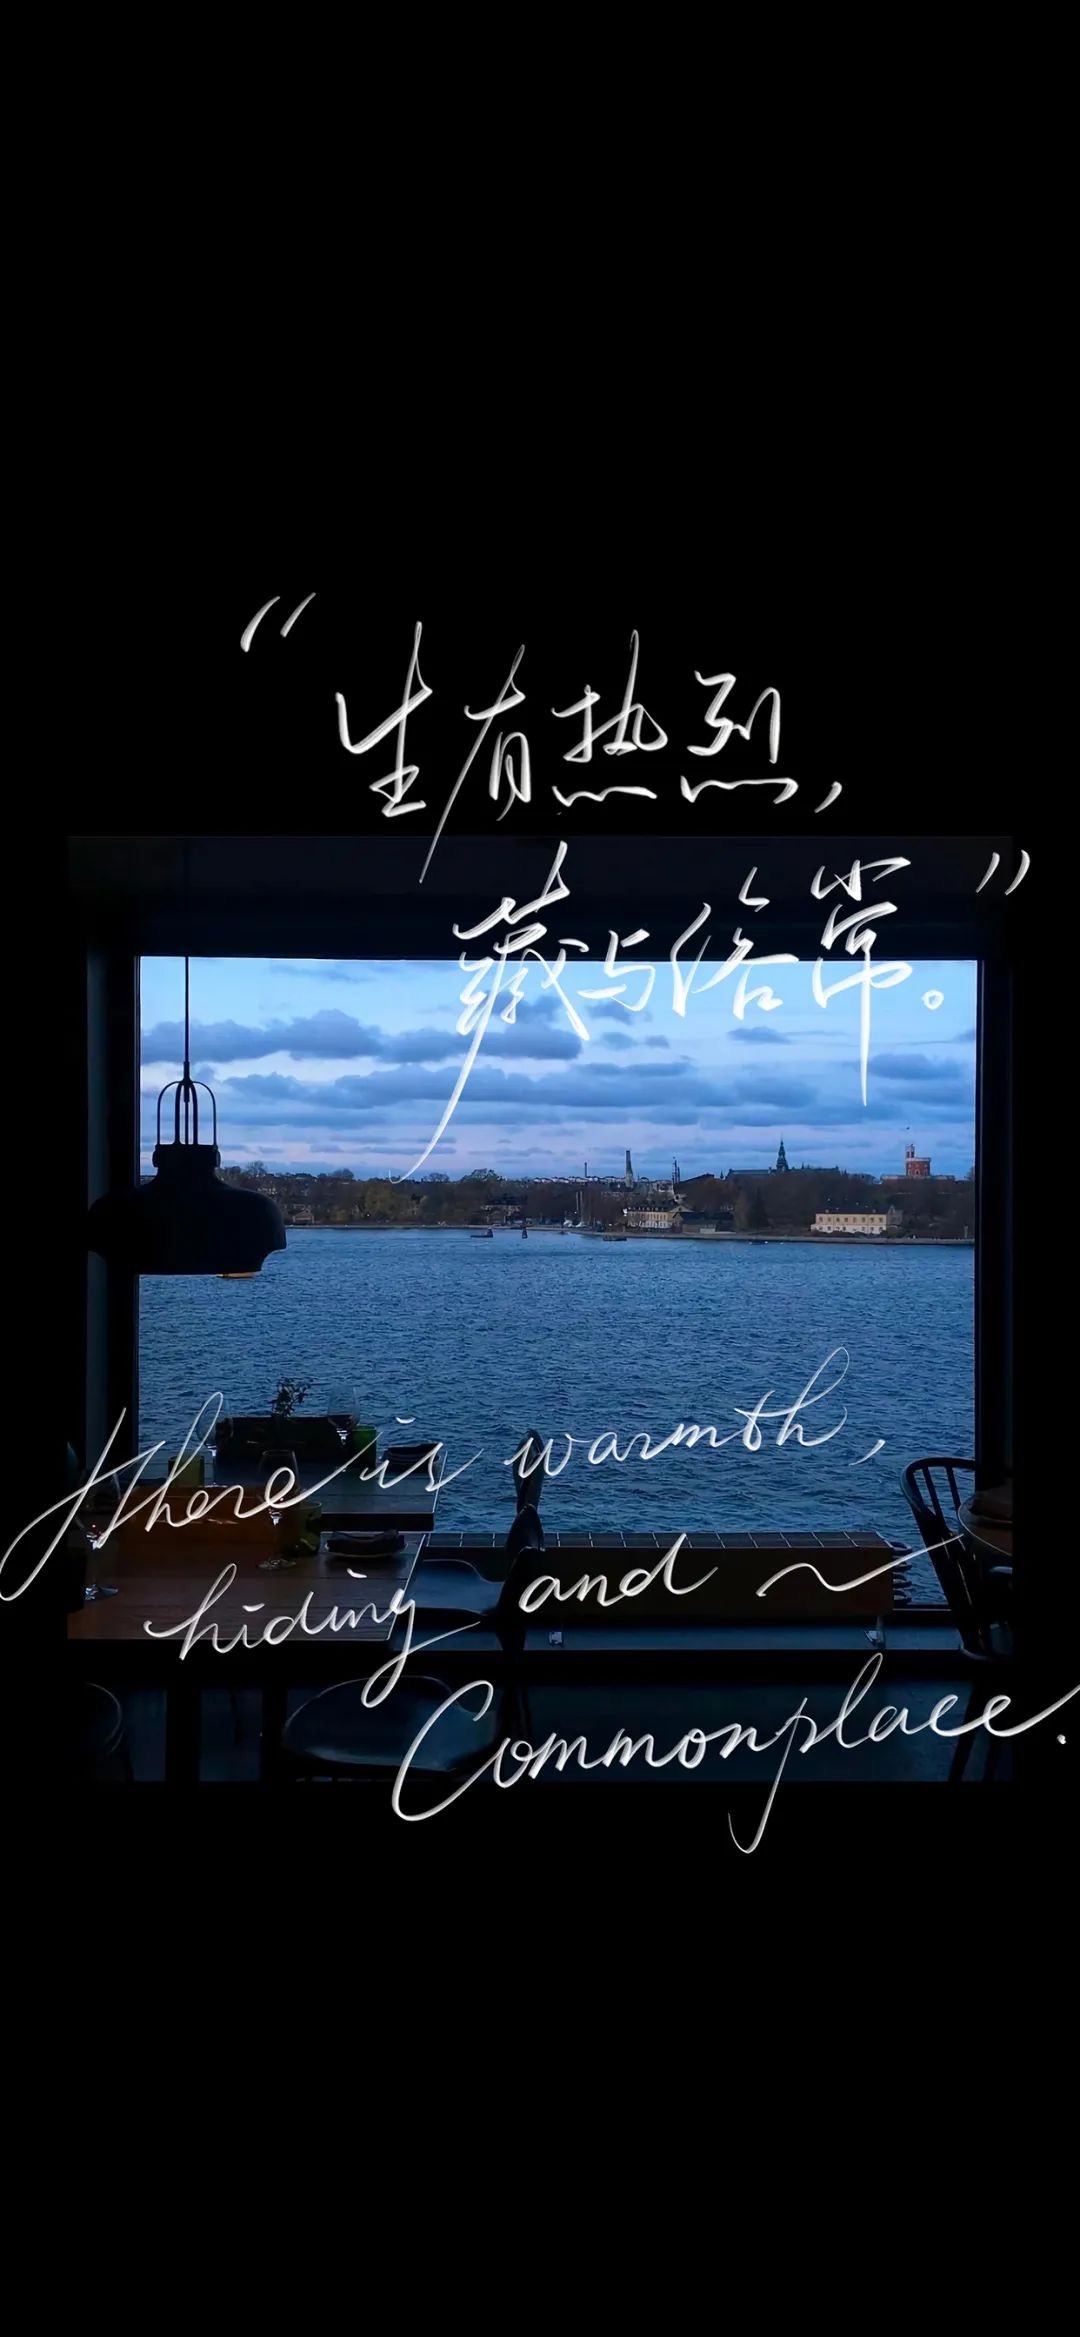 “生有热烈，
藏与俗常。”
there is warmth,
hiding and ~
Commonplace.